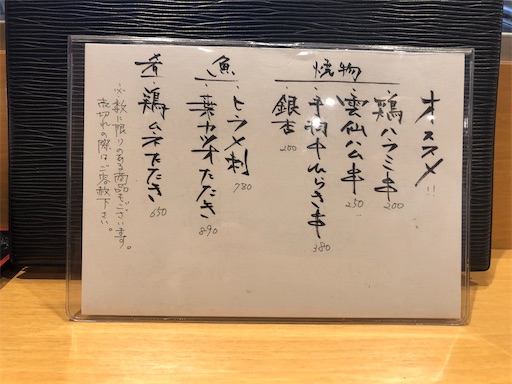 オススメ!!
焼物
・鶏ハラミ串 200
・雲仙ハム串 250
・手羽中ひらき串 380
・銀杏 200
魚
・ヒラメ刺 780
カツオたたき 890
・鶏ムネたたき 650
※数に限りのある商品もございます。
売切れの際はご容赦下さい。